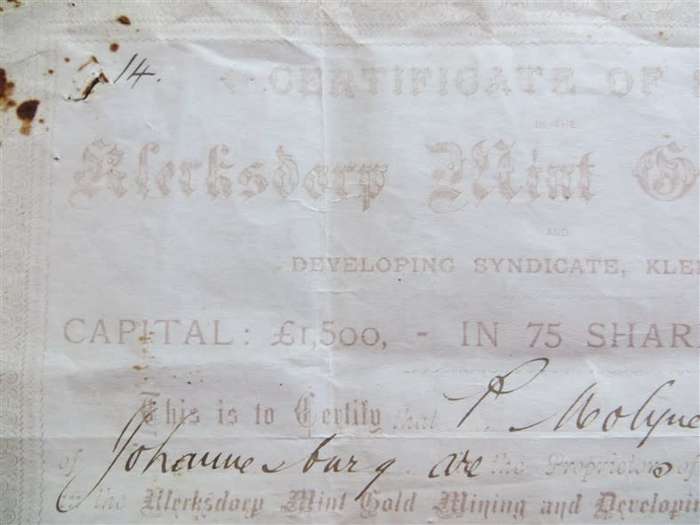 14.
CERTIFICATE OF
IN THE
Klerksdorp Mint G
AND
DEVELOPING SYNDICATE, KLE
CAPITAL: £1,500, - IN 75 SHAR
This is to Certify that P. Molyne
of Johannesburg are the Proprietors of
in the Klerksdorp Mint Gold Mining and Develop